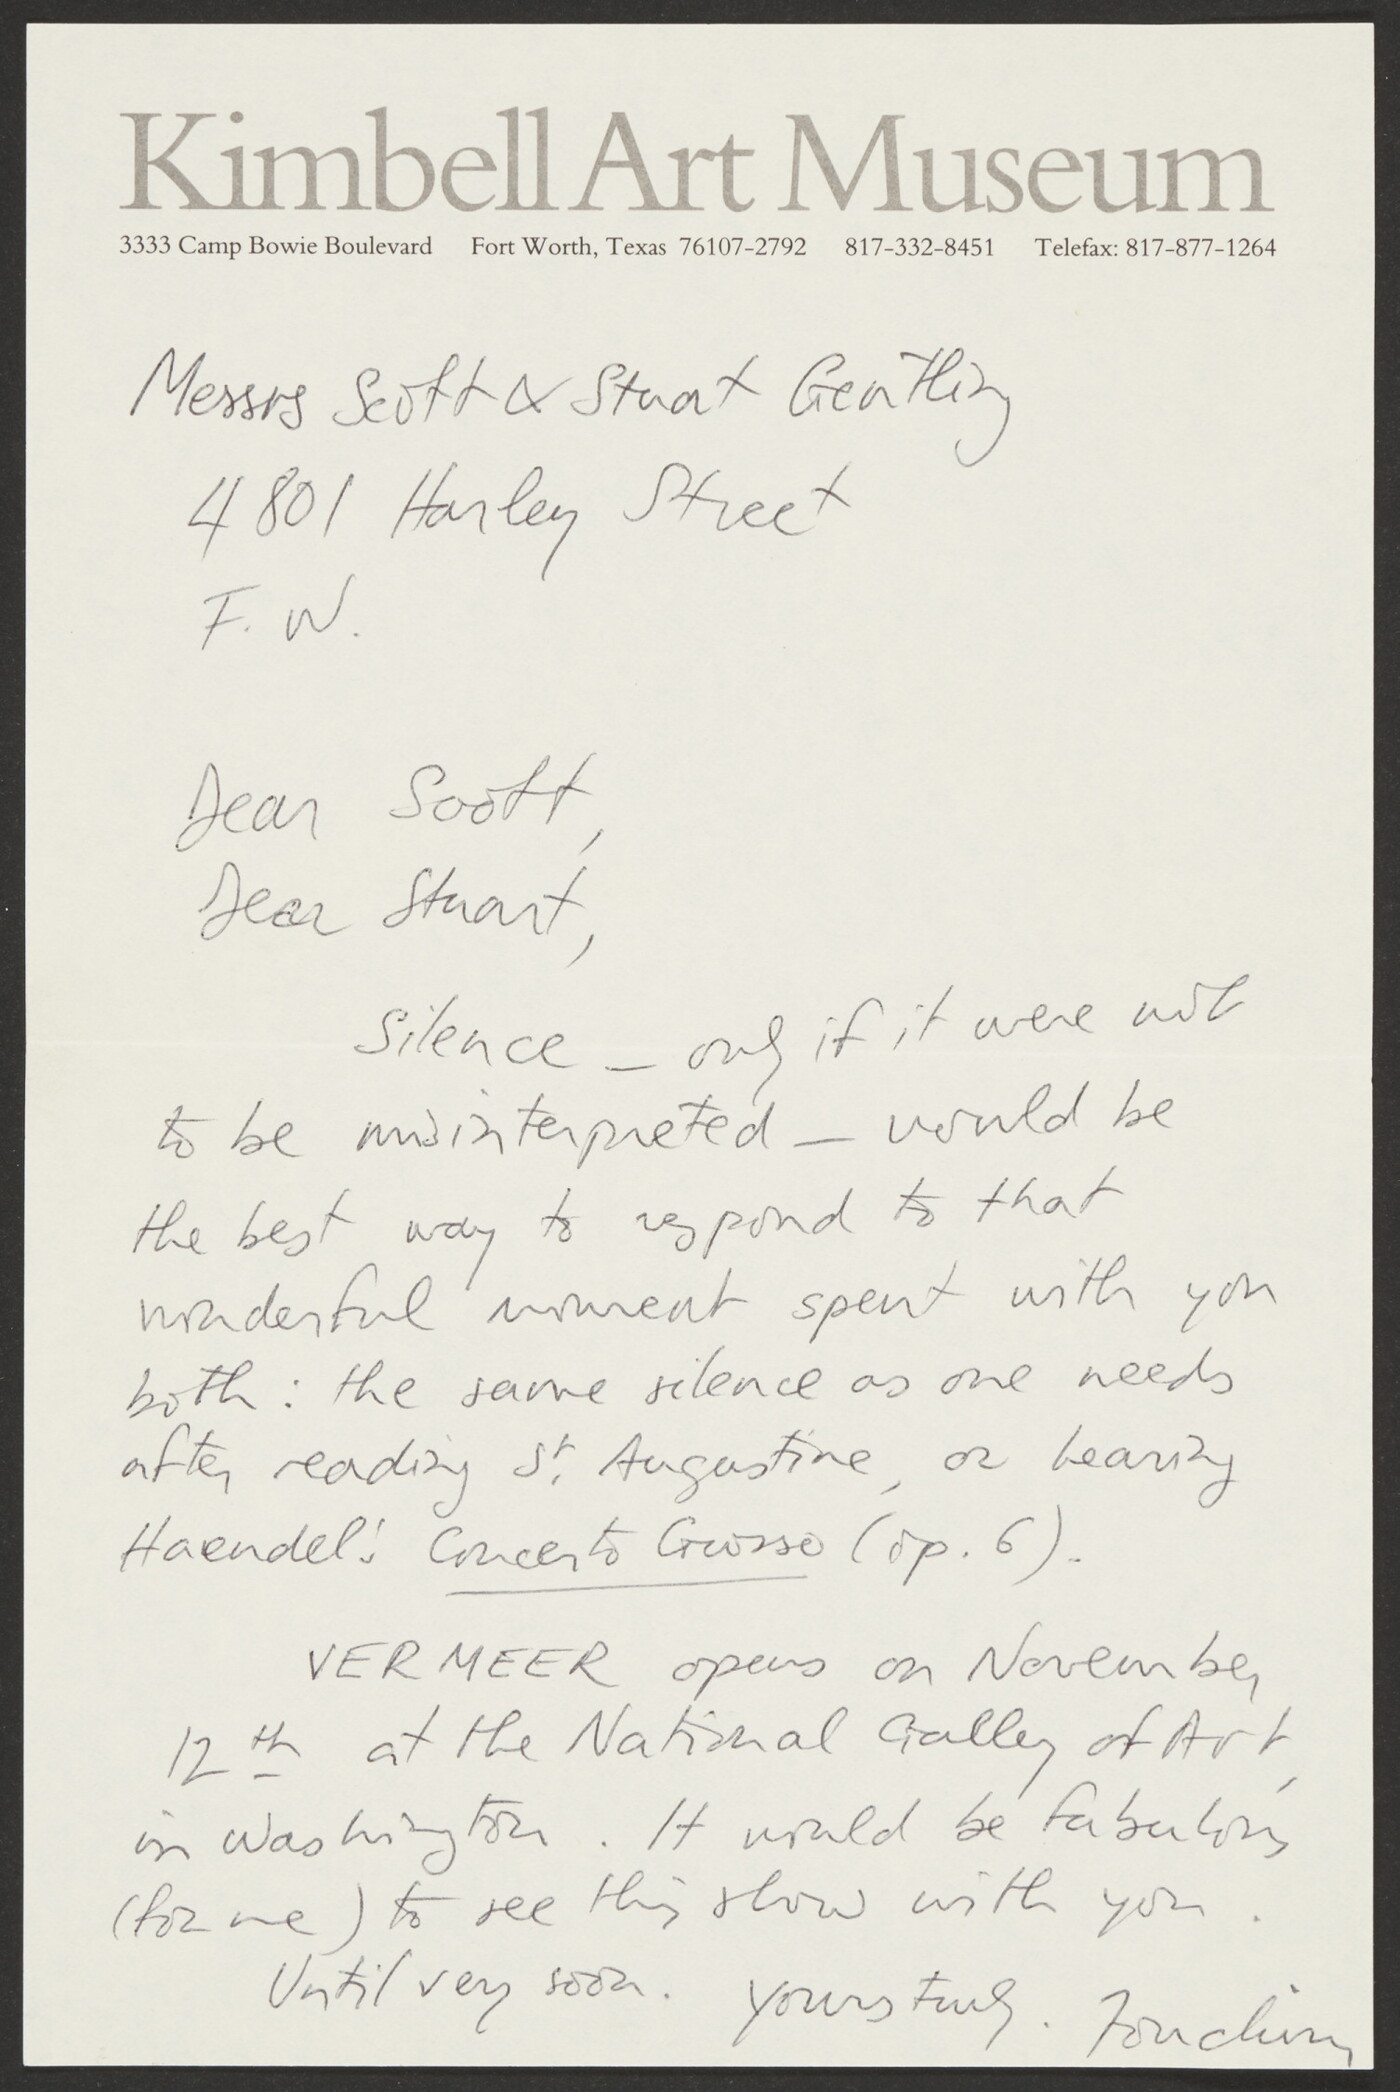 Kimbell Art Museum
3333 Camp Bowie Boulevard Fort Worth, Texas 76107-2792 817-332-8451 Telefax: 817-877-1264
Messrs Scott & Stuart Gentling
4801 Harley Street
F. W.
Dear Scott,
Dear Stuart,
Silence – only if it were not
to be misinterpreted – would be
the best way to respond to that
wonderful moment spent with you
both: the same silence as one needs
after reading St. Augustine, or hearing
Haendel's Concerto Grosso (op. 6).
VERMEER opens on November
12th at the National Gallery of Art,
in Washington. It would be fabulous
(for me) to see this show with you.
Until very soon. Yours truly.